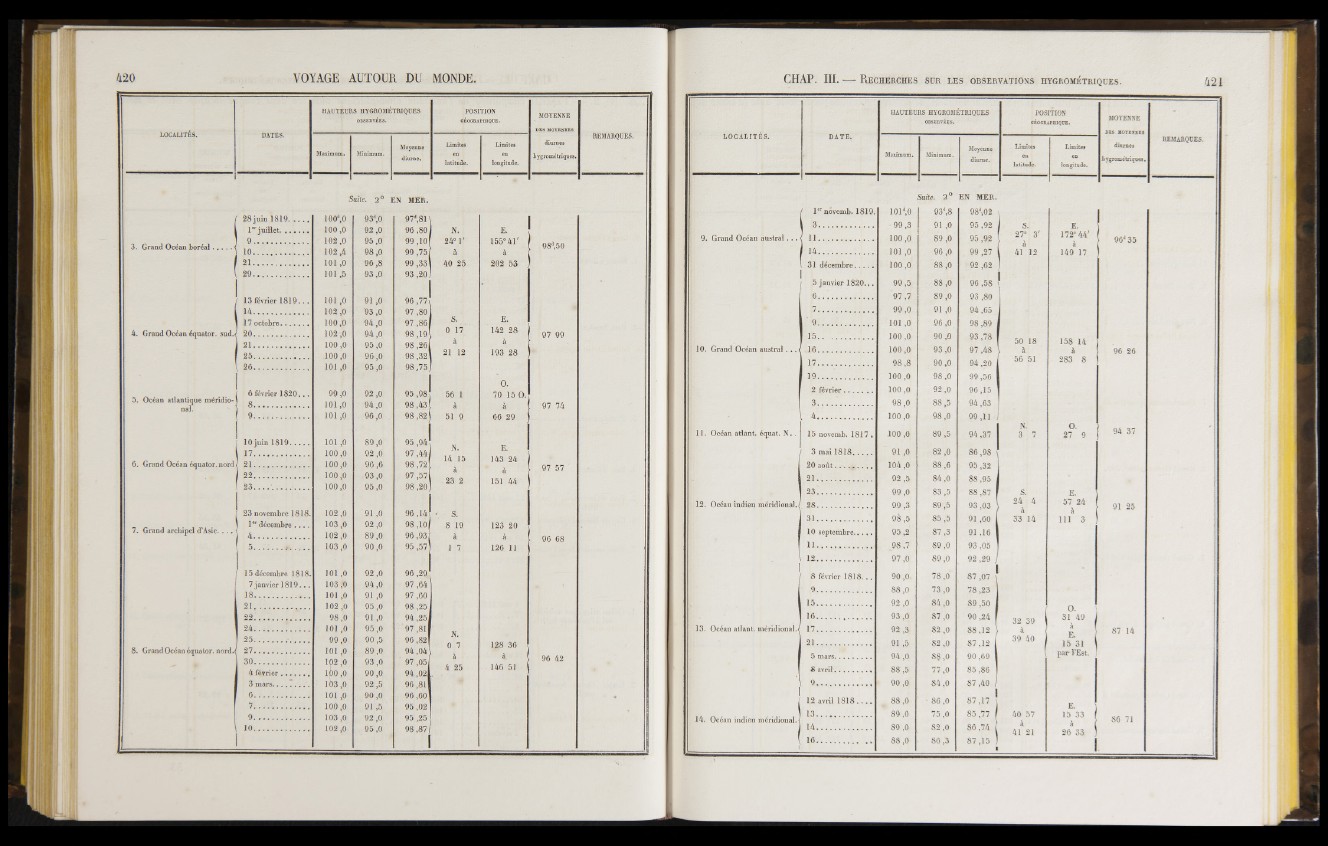 420 VOYAGE AUTOUR DU MONDE.
LOCALITÉS. DATES. HAUTEURS HYGROMÉTRIQUES OBSERVÉES. POSITION GÉOGRAPHIQUE. MOYENNE DES MOYENNES diurnes hygrométriques. REMARQUES.
Maximum. Minimum. Moyenne diurne. Limites en latitude. Limites en longitude.
Suite. 2° EN MER.
3. Grand Océan boréal.....
28 juin 1819..... 100°,0 93°,0 97°,81
1er juillet....... 100,0 92,0 96,80 N. E.
9............. 102,0 95,0 99,10 24° 1' 155° 41'
16............. 102,5 98,0 99,75 à à 98°,50
21............. 101,0 96,8 99,33 40 25 202 53
29............. 101,5 93,0 93,20
4. Grand Océan équator. sud.
13 février 1819... 101,0 91,0 96,77
14............. 102,0 93,0 97,80
17 octobre....... 100,0 94,0 97,86 S. E.
20............. 102,0 94,0 98,19 0 17 142 28 97 99
21............. 100,0 95,0 98,26 à à
25............. 100,0 96,0 98,32 21 12 193 28
26............. 101,0 95,0 98,75
5. Océan atlantique méridional.
O.
6 février 1820... 99,0 92,0 95,98 56 1 70 15 O.
8............. 101,0 94,0 98,43 à à 97 74
9............. 101,0 96,0 98,82 51 9 66 29
6. Grand Océan équator. nord
10 juin 1819..... 101,0 89,0 95,94
17............. 100,0 92,0 97,44 N. E.
21............. 100,0 96,6 98,72 14 15 143 24
22............. 100,0 93,0 97,57 à à 97 57
23............. 100,0 95,0 98,20 23 2 151 44
7. Grand archipel d'Asie....
23 novembre 1818. 102,0 91,0 96,14 S.
1er décembre.... 103,0 92,0 98,10 8 19 123 20
4............. 102,0 89,0 96,93 à à 96 68
5............. 103,0 90,0 95,57 1 7 126 11
8. Grand Océan équator. nord.
15 décembre 1818. 101,0 92,0 96,29
7 janvier 1819... 103,0 94,0 97,64
18............. 101,0 91,0 97,60
21............. 102,0 95,0 98,25
22............. 98,0 91,0 94,25
24............. 101,0 95,0 97,81
25............. 99,0 90,5 96,82 N.
27............. 101,0 89,0 94,04 0 7 128 36
30............. 102,0 93,0 97,05 à à 96 42
4 février....... 100,0 90,0 94,02 4 25 146 51
3 mars......... 103,0 92,5 96,81
6............. 101,0 90,0 96,60
7............. 100,0 91,5 95,02
9............. 103,0 92,0 95,25
10............. 102,0 95,0 98,87
CHAP. III. — RECHERCHES SUR LES OBSERVATIONS HYGROMÉTRIQUES. 421
LOCALITÉS. DATE. HAUTEURS HYGROMÉTRIQUES OBSERVÉES. POSITION GÉOGRAPHIQUE. MOYENNE DES MOYENNES diurnes hygrométriques. REMARQUES.
Maximum. Minimum. Moyenne diurne. Limites en latitude. Limites en longitude.
Suite. 2° EN MER.
9. Grand Océan austral...
1er novemb. 1819. 101°,0 93°,8 98°,02
3............. 99,3 91,0 95,92 S. E.
11............. 100,0 89,0 95,92 27° 3' 172° 44' 96° 35
14............. 101,0 96,0 99,27 à à
31 décembre..... 100,0 88,0 92,62 41 12 149 17
10. Grand Océan austral...
5 janvier 1820... 99,5 88,0 96,58
6............. 97,7 89,0 93,80
7............. 99,0 91,0 94,65
9............. 101,0 96,0 98,89
15............. 100,0 90,0 93,78 50 18 158 14
16............. 100,0 93,0 97,48 à à 96 26
17............. 98,8 90,0 94,20 56 51 283 8
19............. 100,0 98,0 99,56
2 février....... 100,0 92,0 96,15
3............. 98,0 88,5 94,63
4............. 100,0 98,0 99,11
11. Océan atlant. équat. N.. 15 novemb. 1817. 100,0 89,5 94,37 N. 3 7 O. 27 9 94 37
12. Océan indien méridional.
3 mai 1818..... 91,0 82,0 86,98
20 août......... 104,0 88,6 95,32
21............. 92,5 84,0 88,95
23............. 99,0 85,5 88,87 S. E.
28............. 99,3 89,5 93,03 24 4 57 24 91 25
31............. 98,5 85,5 91,00 à à
10 septembre..... 95,2 87,3 91,16 33 14 111 3
11............. 98,7 89,0 93,05
12............. 97,0 89,0 92,29
13. Océan atlant. méridional.
8 février 1818... 90,0 78,0 87,07
9............. 88,0 73,0 78,23
15............. 92,0 84,0 89,50 O.
16............. 93,0 87,0 90,24 32 39 31 49
17............. 92,3 82,0 88,12 à à 87 14
21............. 91,5 82,0 87,12 39 40 E. 15 31
5 mars......... 94,0 88,0 90,69 par l'Est.
8 avril......... 88,5 77,0 85,86
9............. 90,0 84,0 87,40
14. Océan indien méridional.
12 avril 1818.... 88,0 86,0 87,17 E.
13............. 89,0 75,0 85,77 40 57 15 33
14............. 89,0 82,0 86,74 à à 86 71
16............. 88,0 86,3 87,15 41 21 26 33